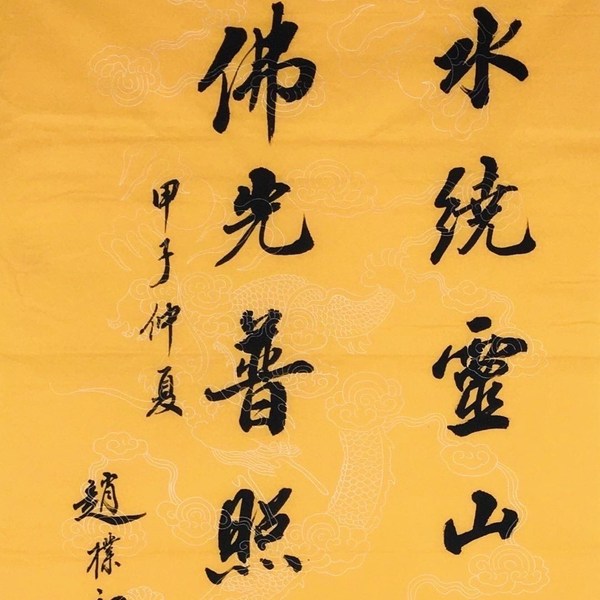 水绕靈山
佛光普照
甲子仲夏
趙樸初